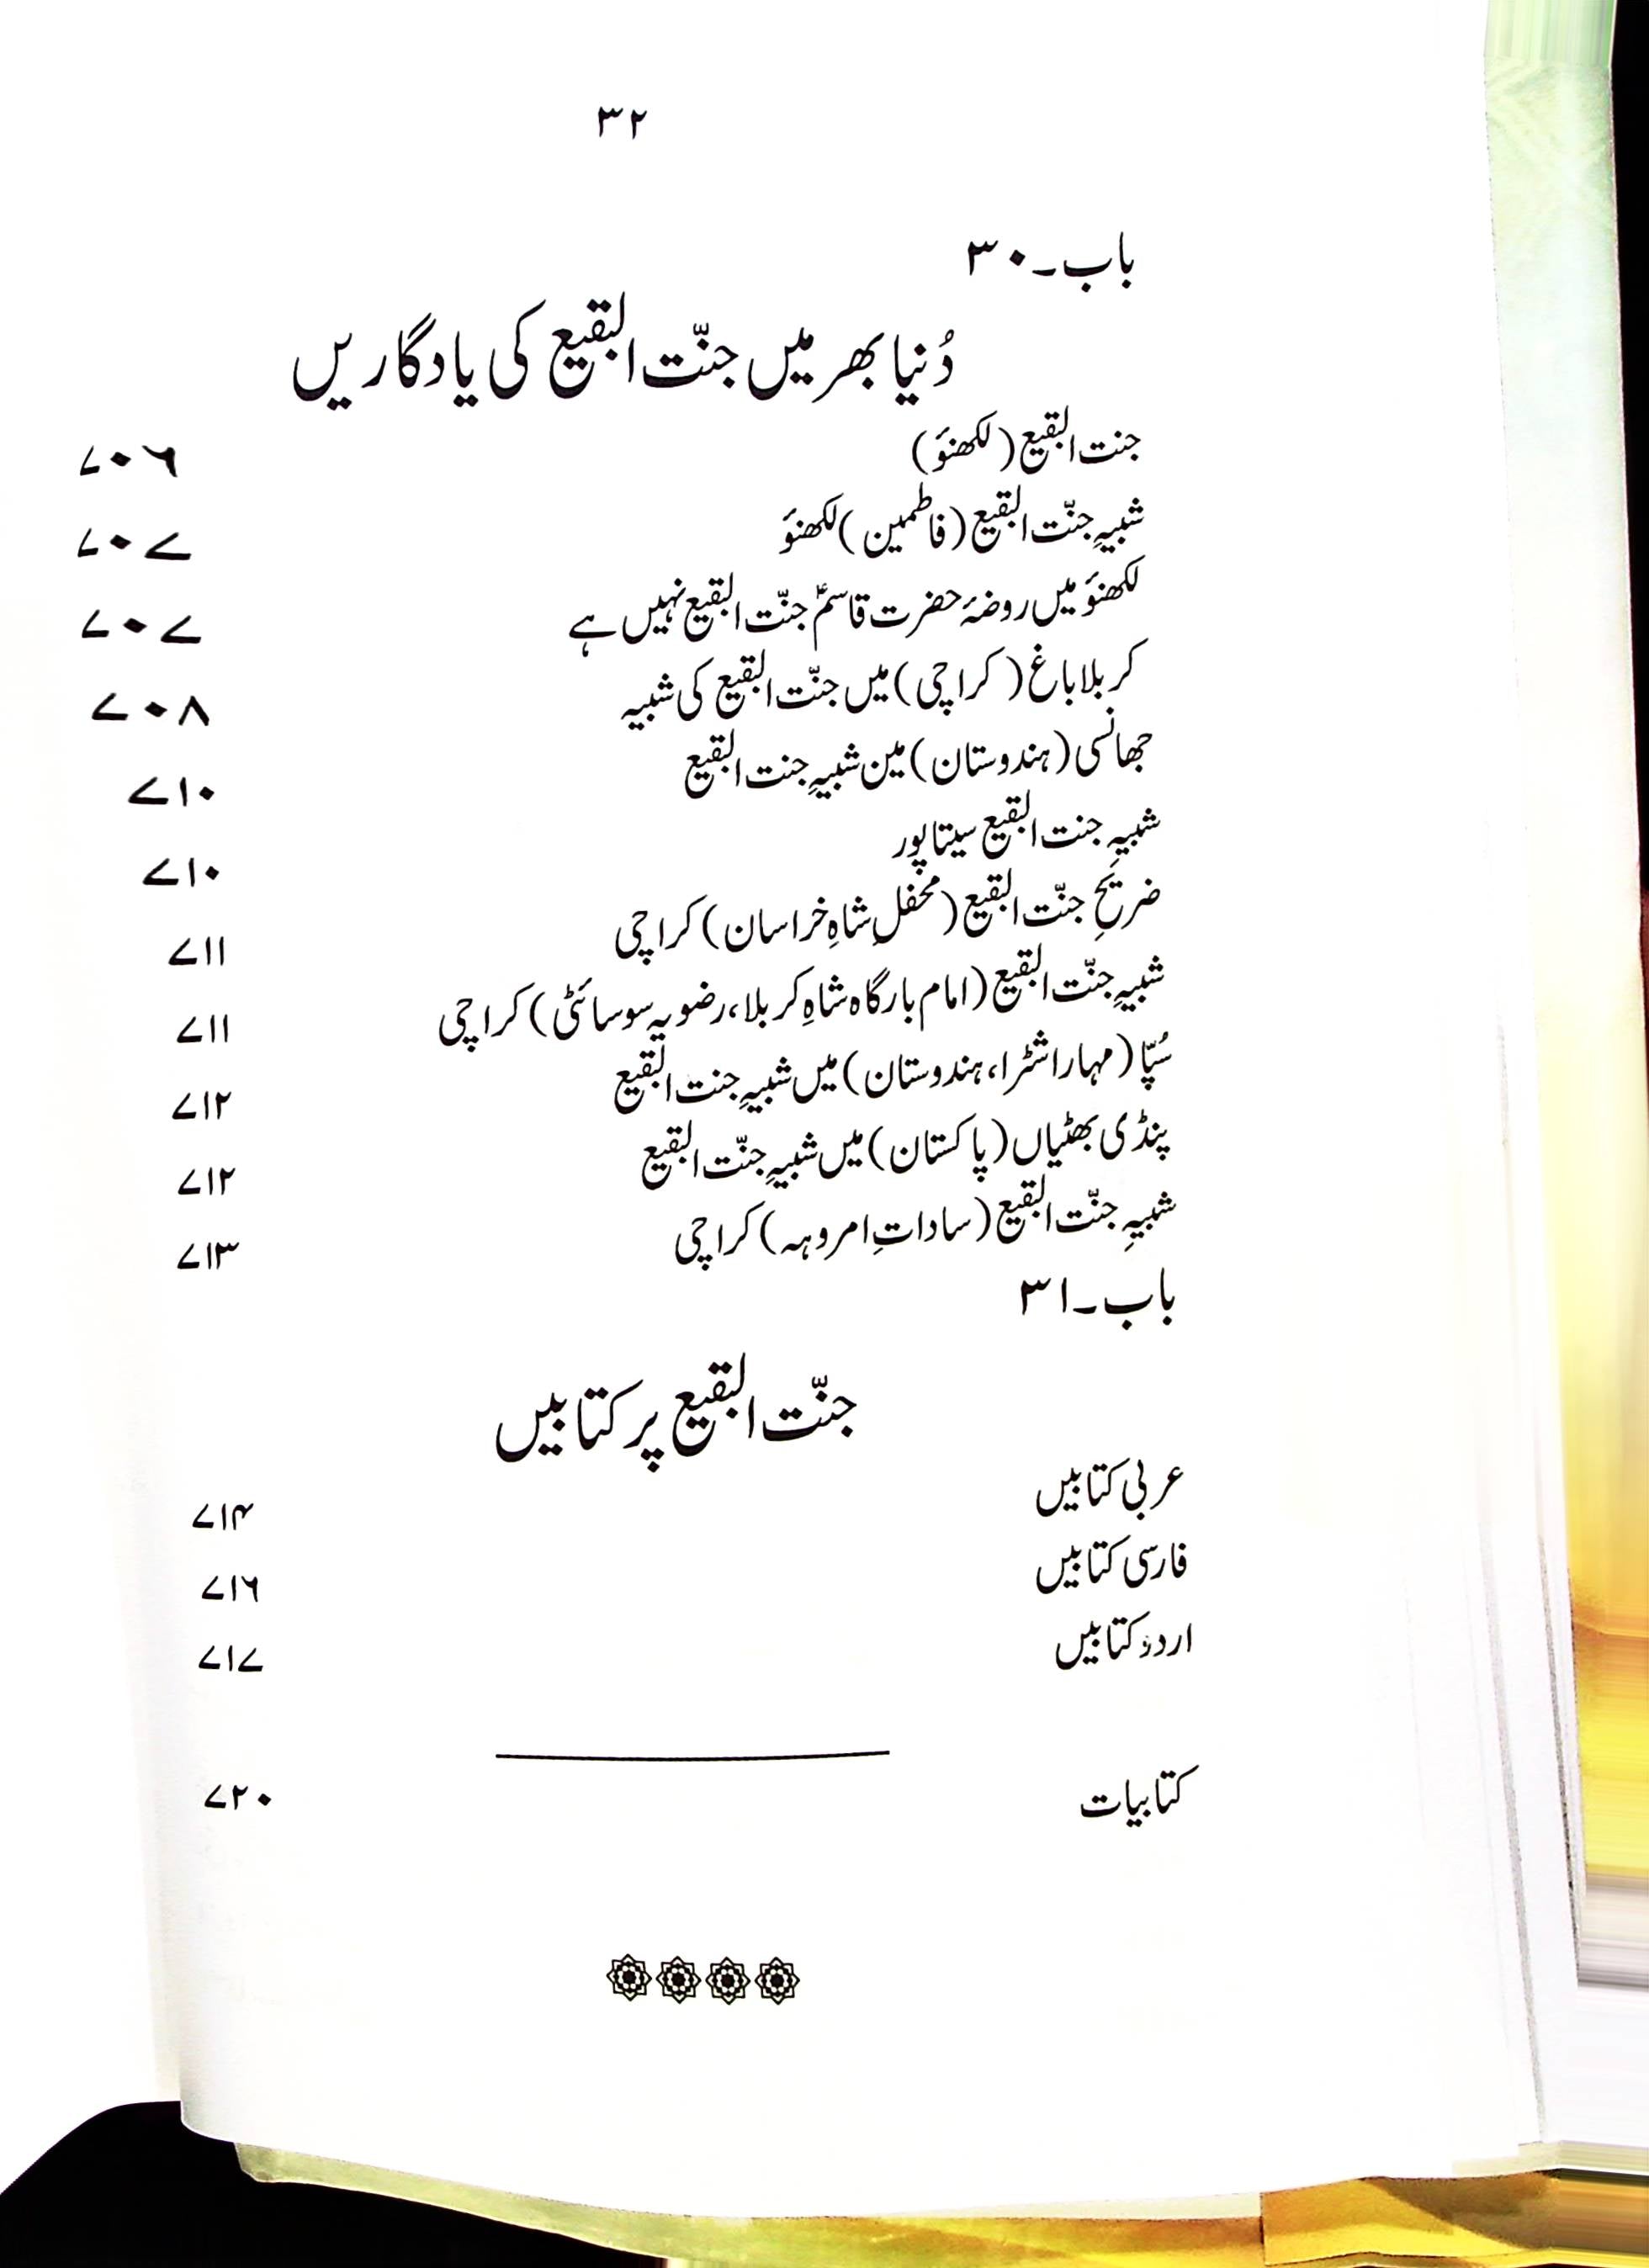 ۳۲
باب۔۳۰
دُنیا بھر میں جنّت البقیع کی یادگاریں
جنت البقیع (لکھنؤ) ۷۰۶
شبیہِ جنّت البقیع (فاطمین) لکھنؤ ۷۰۷
لکھنؤ میں روضۂ حضرت قاسمؑ جنّت البقیع نہیں ہے ۷۰۷
کربلا باغ (کراچی) میں جنّت البقیع کی شبیہ ۷۰۸
جھانسی (ہندوستان) مین شبیہِ جنت البقیع ۷۱۰
شبیہِ جنت البقیع سیتاپور ۷۱۰
ضریحِ جنّت البقیع (محفلِ شاہِ خراسان) کراچی ۷۱۱
شبیہِ جنّت البقیع (امام بارگاہ شاہِ کربلا، رضویہ سوسائٹی) کراچی ۷۱۱
سُپّا (مہاراشٹرا، ہندوستان) میں شبیہِ جنت البقیع ۷۱۲
پنڈی بھٹیاں (پاکستان) میں شبیہِ جنّت البقیع ۷۱۲
شبیہِ جنّت البقیع (ساداتِ امروہہ) کراچی ۷۱۳
باب۔۳۱
جنّت البقیع پر کتابیں
عربی کتابیں ۷۱۴
فارسی کتابیں ۷۱۶
اردو کتابیں ۷۱۷
کتابیات ۷۲۰